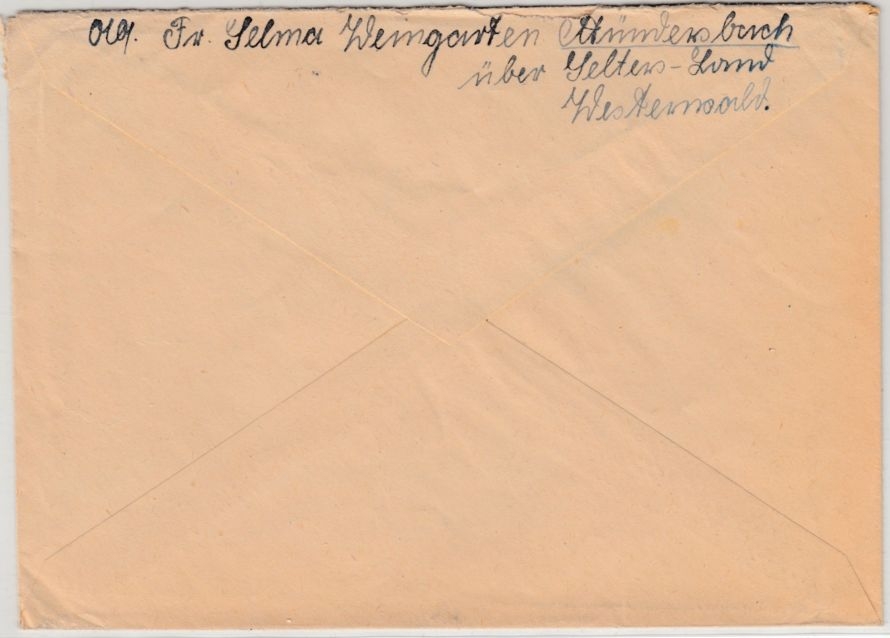 Abs. Fr. Selma Weingarten Mündersbach
über Selters-Land
Westerwald.